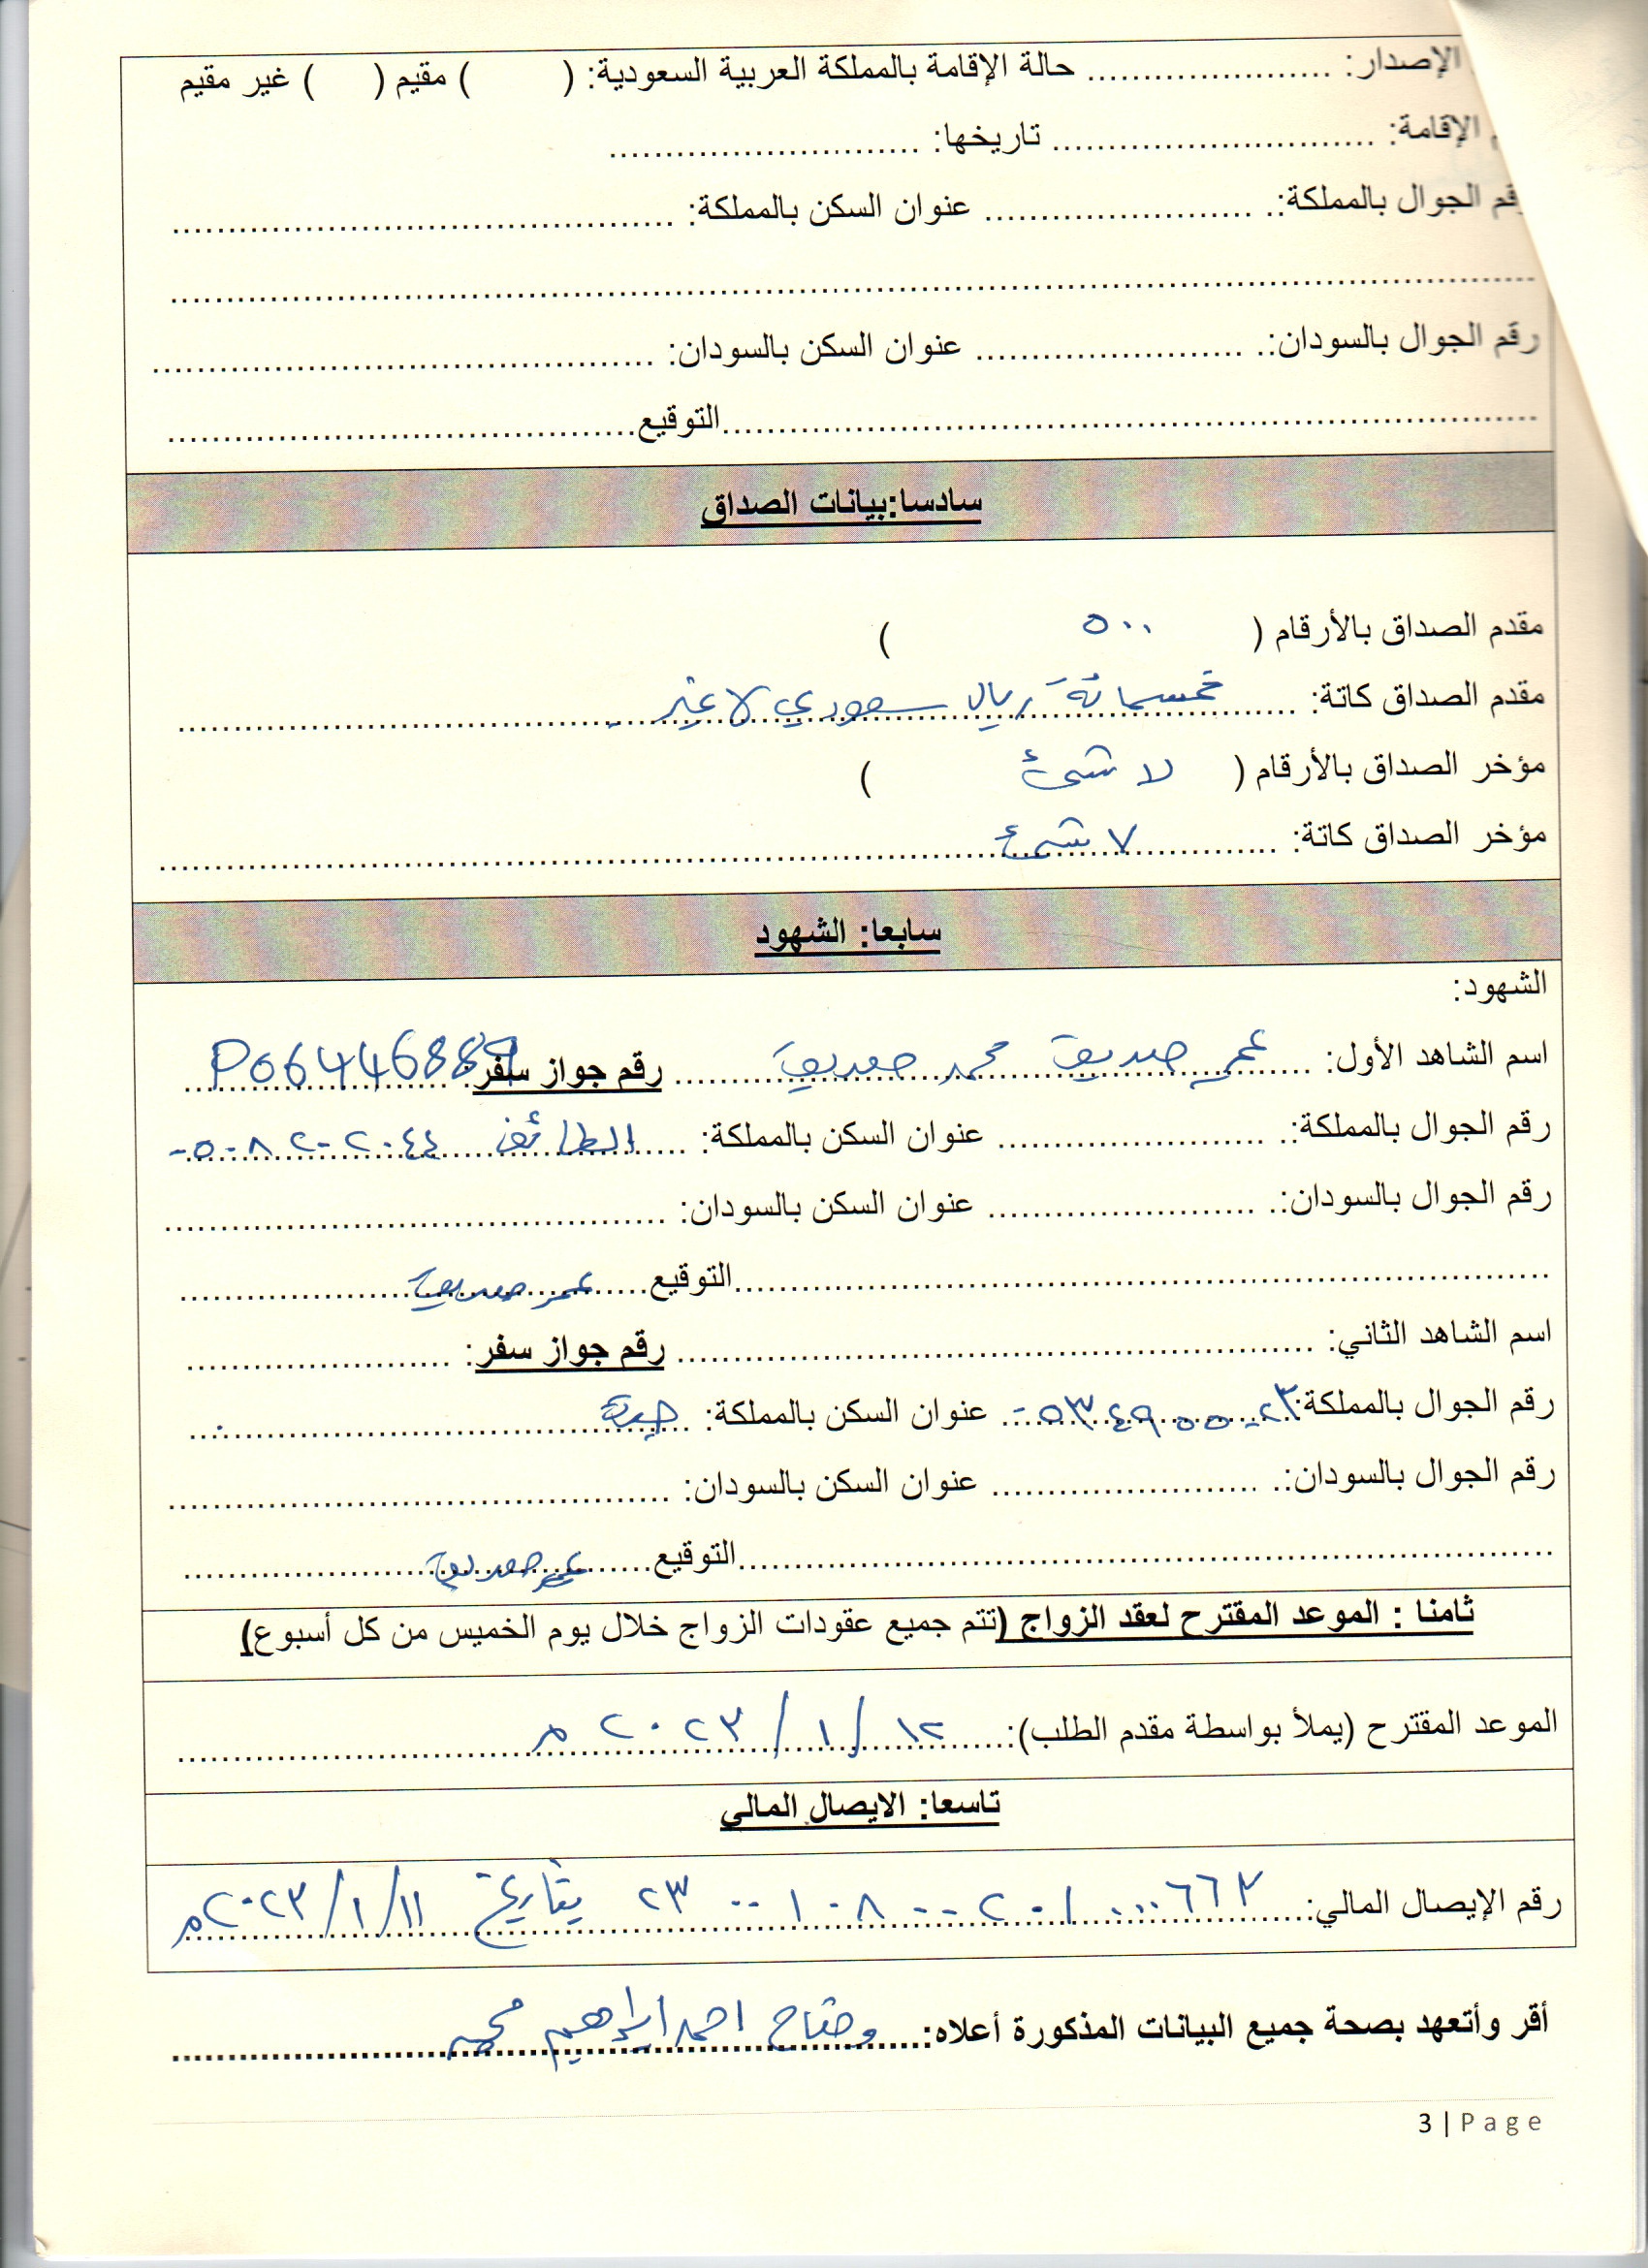 الإصدار: ...................... حالة الإقامة بالمملكة العربية السعودية: (        ) مقيم (     ) غير مقيم
الإقامة: ............................. تاريخها: ............................
رقم الجوال بالمملكة:. ........................ عنوان السكن بالمملكة: .............................................
..........................................................................................................................
رقم الجوال بالسودان:. ........................ عنوان السكن بالسودان: .............................................
.........................................................................التوقيع..........................................
سادسا:بيانات الصداق
مقدم الصداق بالأرقام ( ٥٠٠ )
مقدم الصداق كاتة: خمسمائة ريال سعودي لا غير
مؤخر الصداق بالأرقام ( لا شئ )
مؤخر الصداق كاتة: لا شئ
سابعا: الشهود
الشهود:
اسم الشاهد الأول: عمر صديق محمد صديق رقم جواز سفر: P06446889
رقم الجوال بالمملكة:. ........................ عنوان السكن بالمملكة: الطائف ٠٥٠٨٢٠٢٠٤٤
رقم الجوال بالسودان:. ........................ عنوان السكن بالسودان: .............................................
.........................................................................التوقيع عمر صديق
اسم الشاهد الثاني: ......................................................... رقم جواز سفر: ........................
رقم الجوال بالمملكة: عنوان السكن بالمملكة: جدة
رقم الجوال بالسودان:. ........................ عنوان السكن بالسودان: .............................................
.........................................................................التوقيع عمر صديق
ثامنا : الموعد المقترح لعقد الزواج (تتم جميع عقودات الزواج خلال يوم الخميس من كل أسبوع)
الموعد المقترح (يملأ بواسطة مقدم الطلب): ١٢/ ١/ ٢٠٢٣ م
تاسعا: الايصال المالي
رقم الإيصال المالي: بتاريخ ١١/ ١/ ٢٠٢٣م
أقر وأتعهد بصحة جميع البيانات المذكورة أعلاه: وضاح احمد ابراهيم محمد
3 | Page